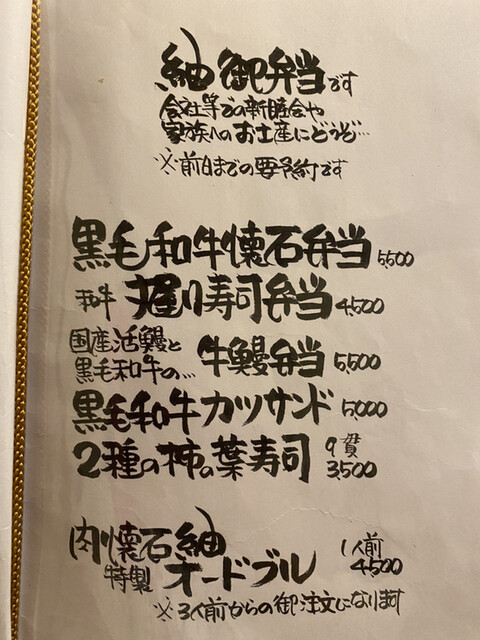 紬 御弁当です
会社等での新睦会や
家族へのお土産にどうぞ…
※前日までの要予約です
黒毛和牛懐石弁当 5,500
和牛 握り寿司弁当 4,500
国産活鰻と
黒毛和牛の… 牛鰻弁当 5,500
黒毛和牛カツサンド 5,000
2種の柿の葉寿司 9貫 3,500
肉懐石紬
特製 オードブル 1人前 4,500
※3人前からの御注文になります